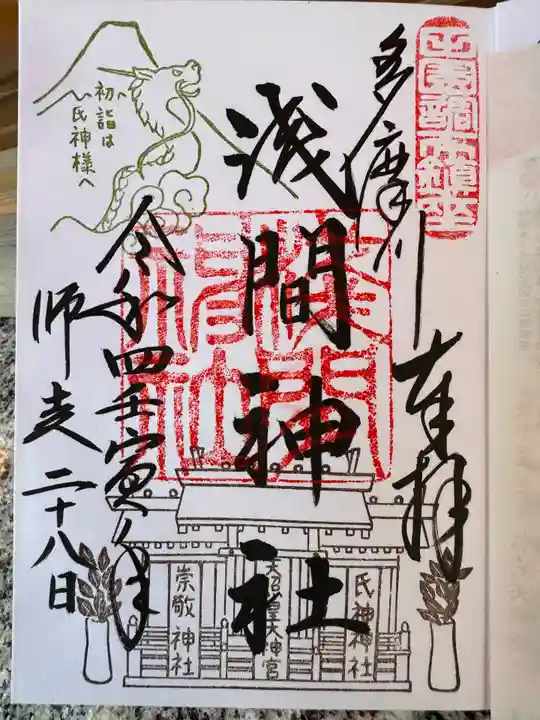 多摩川
奉拝
浅間神社
令和四壬寅年
師走二十八日
初詣は
氏神様へ
氏神神社
天照皇大神宮
崇敬神社
浅間
神社